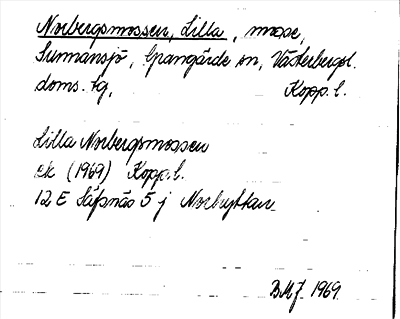 Norbergsmossen, Lilla, mosse,
Sunnansjö, Grangärde sn, Västerbergsl.
doms. tg, Kopp. l.
Lilla Norbergsmossen
ek (1969) Kopp. l.
12 E Säfsnäs 5 j Norhyttan
BMJ. 1969.